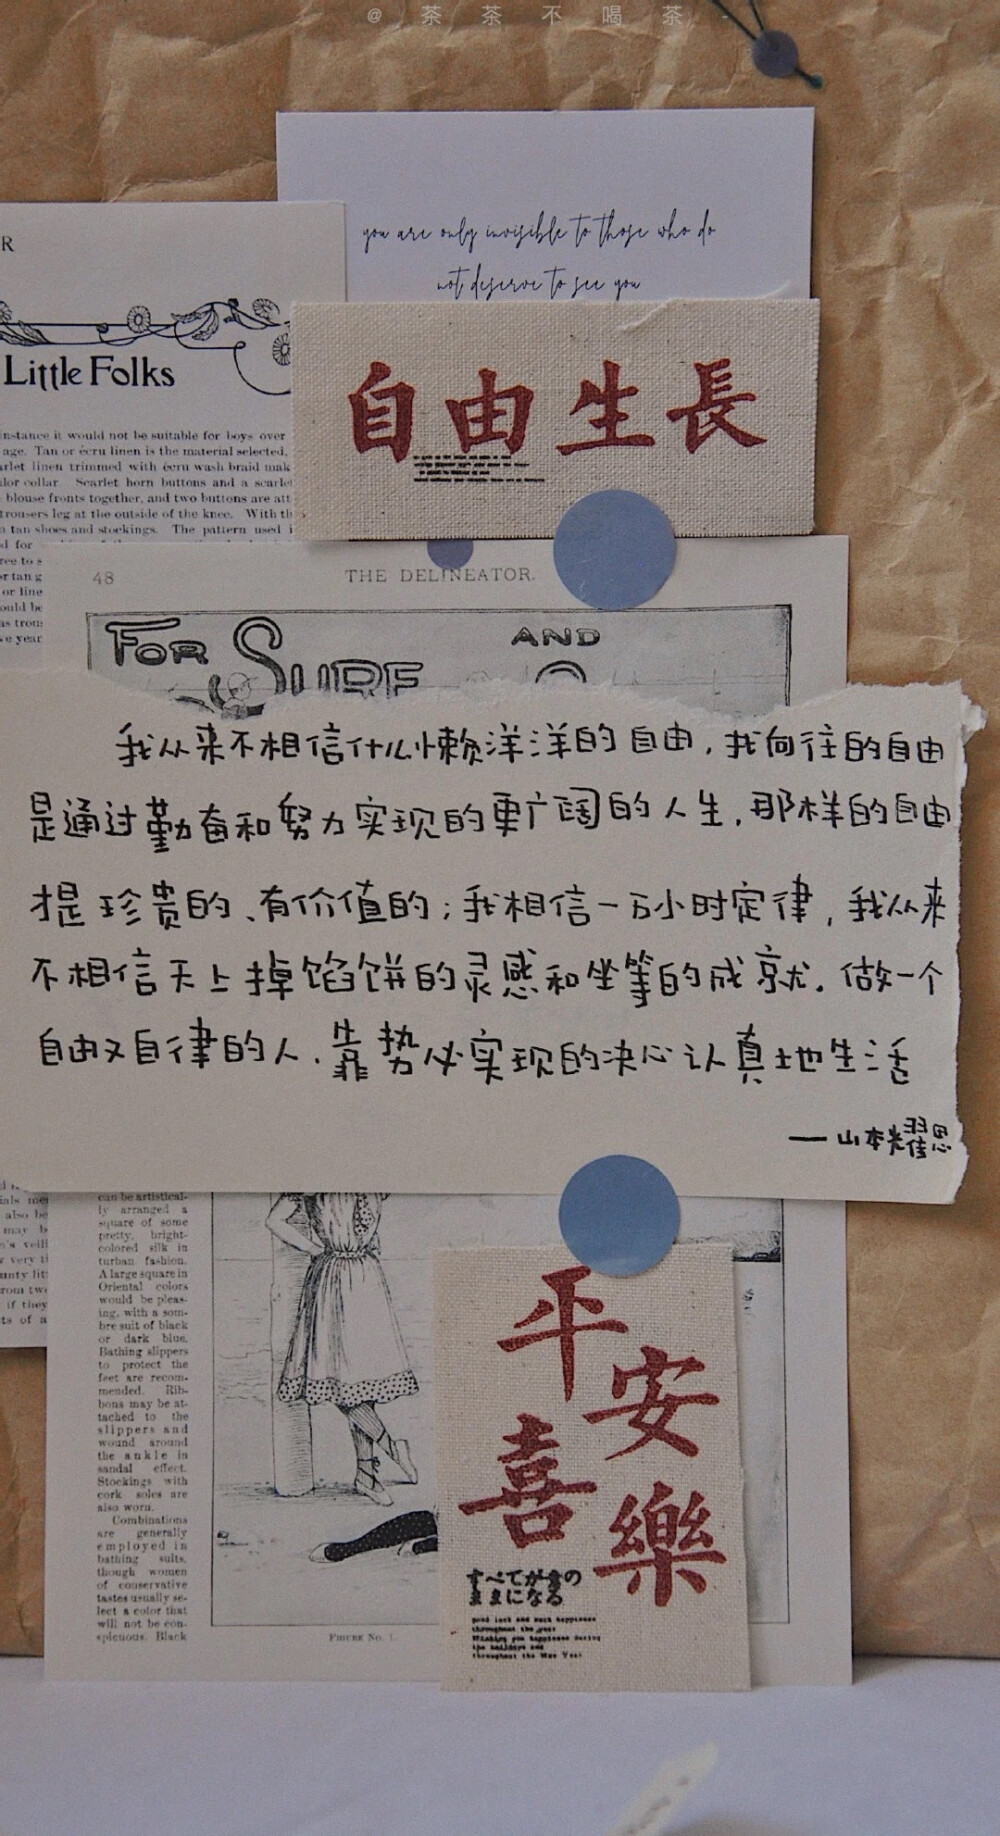 @茶茶不喝茶
you are only invisible to those who do
not deserve to see you
R
Little Folks
instance it would not be suitable for boys over
age. Tan or écru linen is the material selected,
arlet linen trimmed with écru wash braid mak
lor collar. Scarlet horn buttons and a scarlet
blouse fronts together, and two buttons are att
trousers leg at the outside of the knee. With th
tan shoes and stockings. The pattern used i
d for
ree to s
or tan g
or line
ould be
as trou
ve year
自由生長
48
THE DELINEATOR.
FOR SURF AND
我从来不相信什么懒洋洋的自由,我向往的自由
是通过勤奋和努力实现的更广阔的人生,那样的自由
才是珍贵的、有价值的;我相信一万小时定律,我从来
不相信天上掉馅饼的灵感和坐等的成就。做一个
自由又自律的人,靠势必实现的决心认真地生活
——山本光耀思
ials me
also be
may b
's veili
very ti
unty litt
rom two
if they
ts of a
can be artistical-
ly arranged a
square of some
pretty, bright-
colored silk in
turban fashion.
A large square in
Oriental colors
would be pleas-
ing, with a som-
bre suit of black
or dark blue.
Bathing slippers
to protect the
feet are recom-
mended. Rib-
bons may be at-
tached to the
slippers and
wound around
the ankle in
sandal effect.
Stockings with
cork soles are
also worn.
Combinations
are generally
employed in
bathing suits,
though women
of conservative
tastes usually se-
lect a color that
will not be con-
spicuous. Black
FIGURE NO. 1.
平安
喜樂
すべてが意の
ままになる
good luck and much happiness
throughout the year
Wishing you happiness during
the holidays and
throughout the New Year